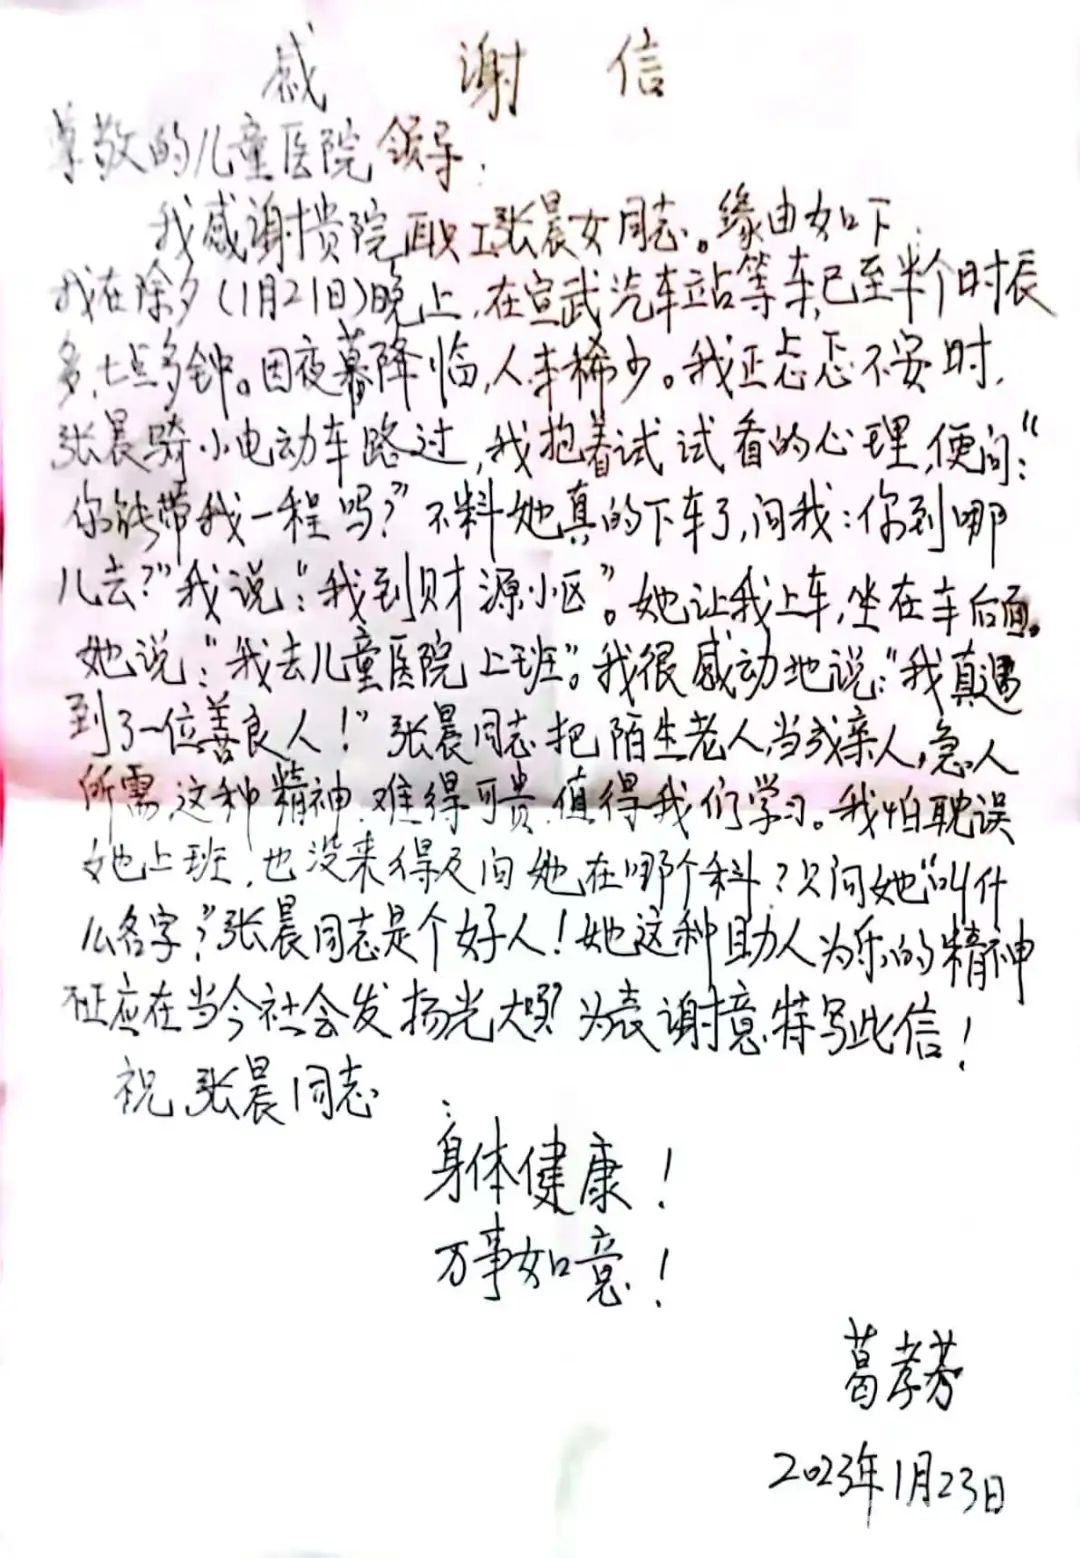 感谢信
尊敬的儿童医院领导:
我感谢贵院职工张晨女同志。缘由如下:
我在除夕(1月21日)晚上,在宣武汽车站等车,已至半个时辰
多,七点多钟。因夜幕降临,人车稀少。我正忐忑不安时,
张晨骑小电动车路过,我抱着试试看的心理,便问:“
你能带我一程吗?”不料她真的下车了,问我:你到哪
儿去?”我说:“我到财源小区”。她让我上车,坐在车后面。
她说:“我去儿童医院上班”。我很感动地说:“我真遇
到了一位善良人!”张晨同志把陌生老人,当成亲人,急人
所需这种精神,难得可贵,值得我们学习。我怕耽误
她上班,也没来得及问她在哪个科?只问她“叫什
么名字?”张晨同志是个好人!她这种助人为乐的精神
不正应在当今社会发扬光大吗?为表谢意,特写此信!
祝张晨同志
:
身体健康!
万事如意!
葛孝芬
2023年1月23日